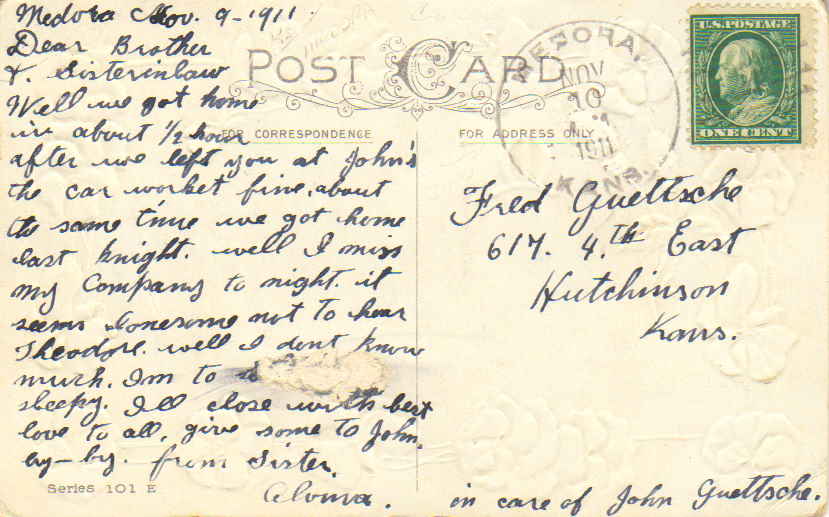 Medora Nov. 9-1911.
Dear Brother
& Sisterinlaw
Well we got home
in about 1/2 hour
after we left you at John's
the car worket fine. about
the same time we got home
last knight. well I miss
my Company to night. it
seems lonesome not to hear
Theodore. well I dont know
much. Im to
sleepy. Ill close with best
love to all, give some to John.
by-by. from Sister.
POST CARD
FOR CORRESPONDENCE
FOR ADDRESS ONLY
MEDORA,
NOV
10
1911
KANS.
U.S. POSTAGE
ONE CENT
Fred Guettsche
617. 4.th East
Hutchinson
Kans.
in care of John Guettsche.
Series 101 E